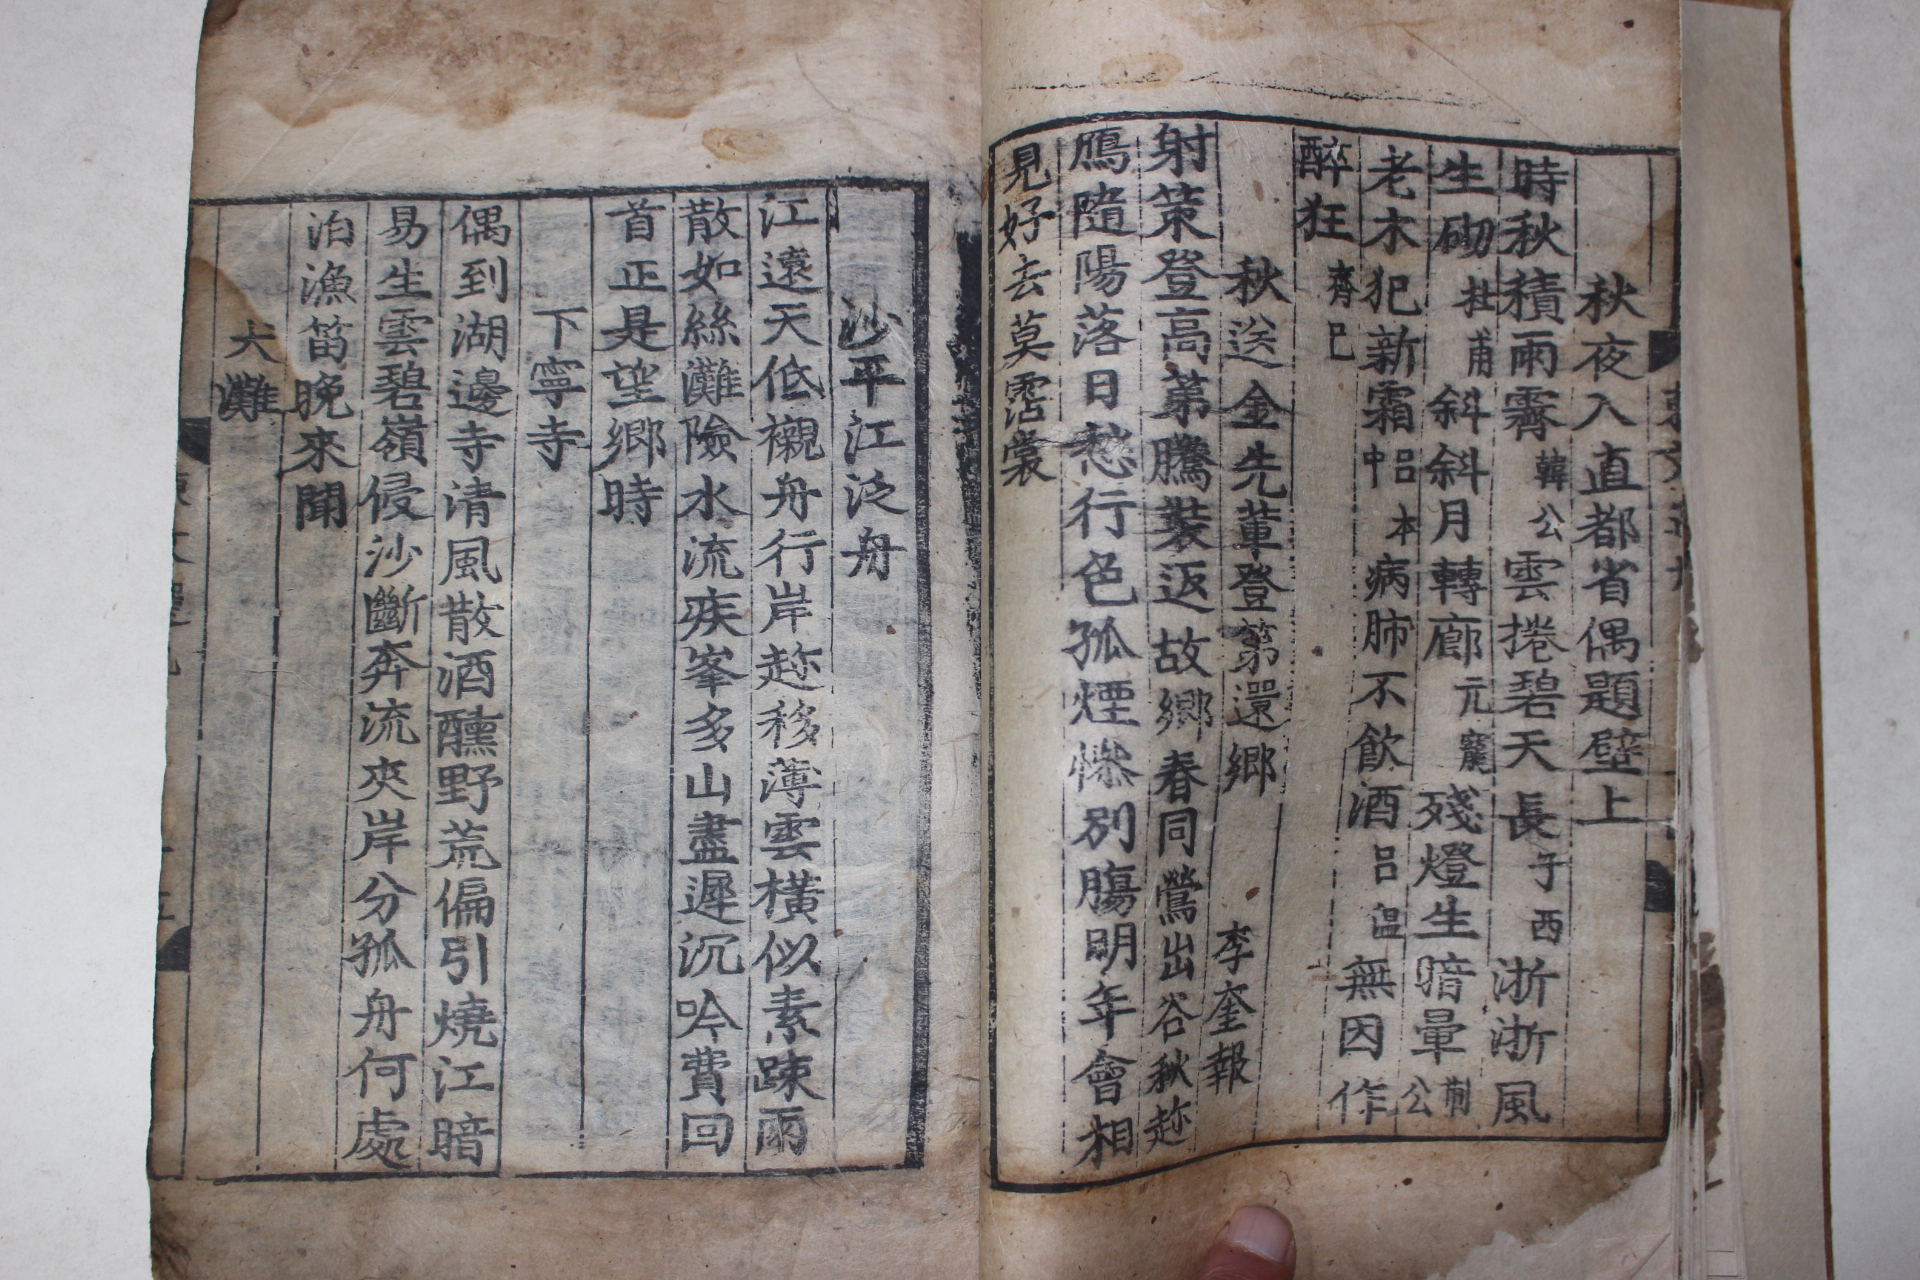 秋夜入直都省偶題壁上
時秋積雨霽韓公雲捲碧天長子西浙浙風
生砌杜甫斜斜月轉廊元寵殘燈生暗暈荊公
老木犯新霜呂本中病肺不飮酒呂溫無因作
醉狂齊己
秋送金先輩登第還鄉 李奎報
射策登高第騰裝返故鄉春同鶯出谷秋趂
鴈隨陽落日愁行色孤煙慘別膓明年會相
見好去莫霑裳
沙平江泛舟
江遠天低襯舟行岸趂移薄雲橫似素踈雨
散如絲灘險水流疾峯多山盡遲沉吟費回
首正是望鄉時
下寧寺
偶到湖邊寺清風散酒醺野荒偏引燒江暗
易生雲碧嶺侵沙斷奔流夾岸分孤舟何處
泊漁笛晚來聞
犬灘